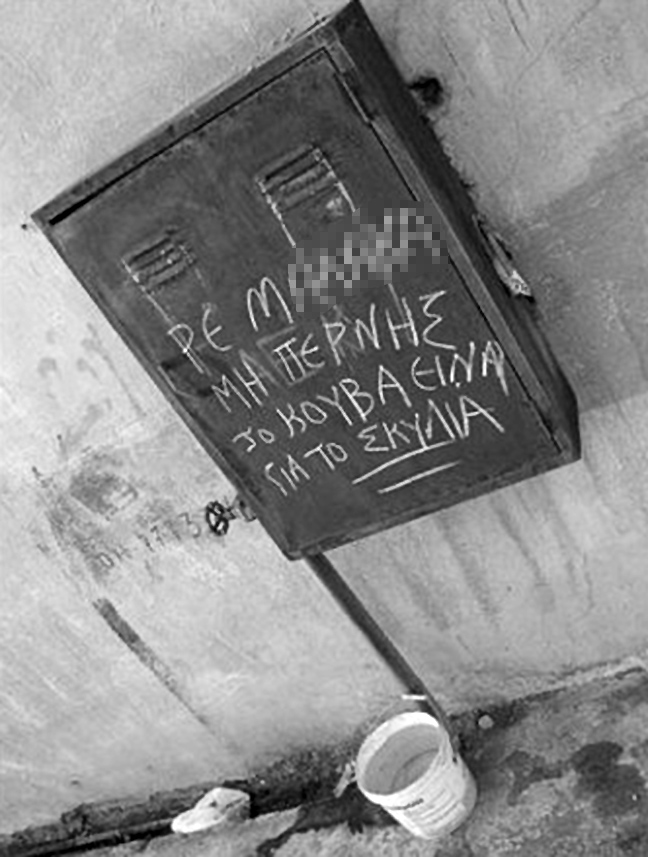 ΡΕ Μ
ΜΗ ΠΕΡΝΗΣ
ΤΟ ΚΟΥΒΑ ΕΙΝΑ
ΓΙΑ ΤΟ ΣΚΥΛΙΑ